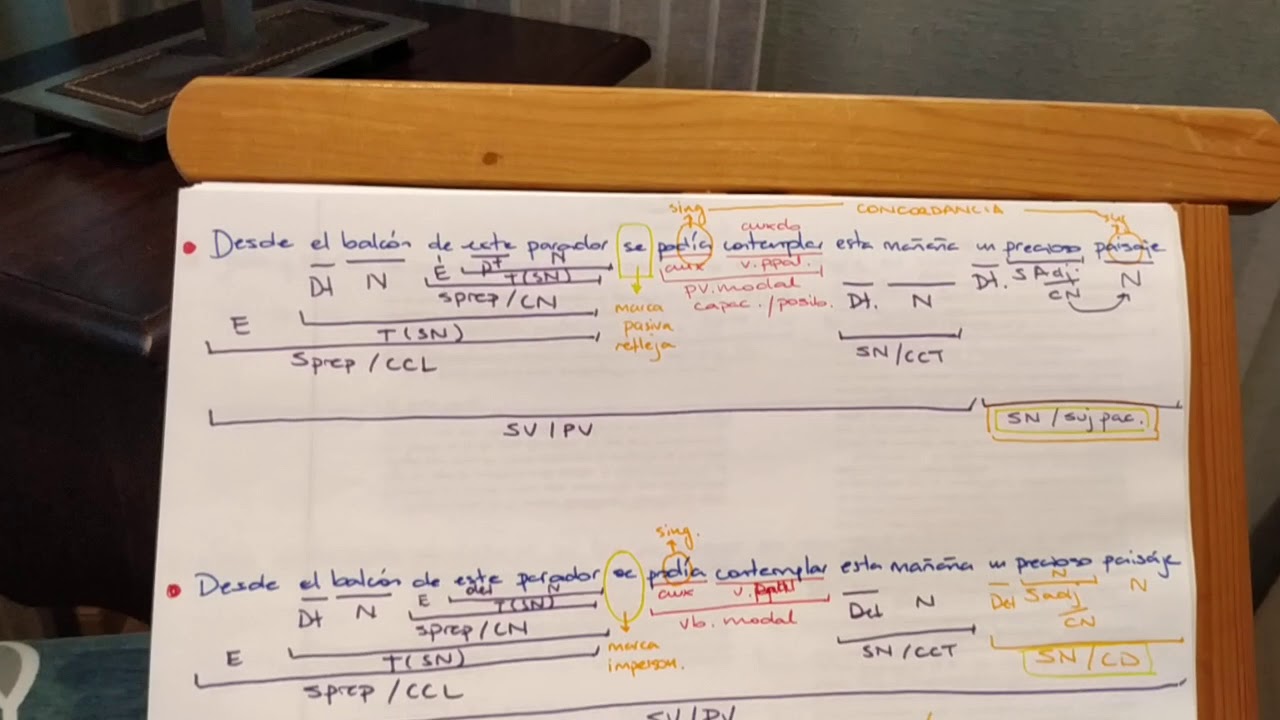 sing CONCORDANCIA sing
auxdo
Desde el balcón de este parador se podía contemplar esta mañana un precioso paisaje
Dt N E Dt N aux v.ppal. Dt. N Dt. SAdj N
T(SN) CN
Sprep/CN pv.modal
marca capac./posib.
E pasiva
T(SN) refleja SN/CCT
Sprep/CCL
SV/PV SN/suj pac.
sing.
Desde el balcón de este parador se podía contemplar esta mañana un precioso paisaje
Dt N E det N aux v.ppal Det N Det Sadj N N
T(SN) CN
Sprep/CN vb. modal
E marca
T(SN) imperson. SN/CCT SN/CD
Sprep/CCL
SV/PV